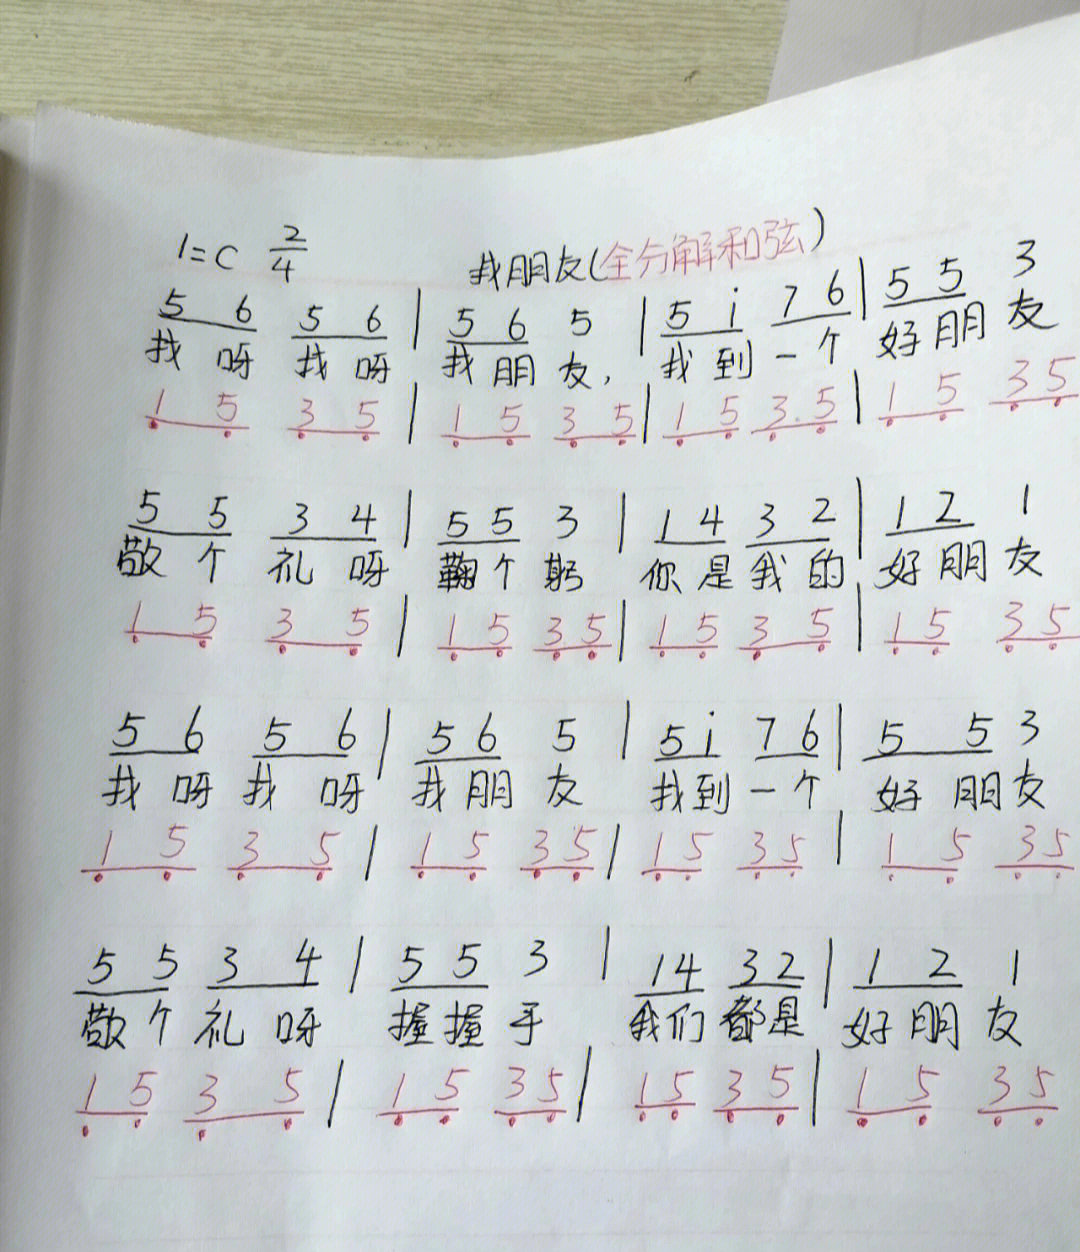 1=C 2/4 找朋友(全分解和弦)
5 6 5 6 | 5 6 5 | 5 i 7 6 | 5 5 3
找 呀 找 呀 找 朋 友, 找 到 一 个 好 朋 友
1 5 3 5 | 1 5 3 5 | 1 5 3.5 | 1 5 3 5
5 5 3 4 | 5 5 3 | 1 4 3 2 | 1 2 1
敬 个 礼 呀 鞠 个 躬 你 是 我 的 好 朋 友
1 5 3 5 | 1 5 3 5 | 1 5 3 5 | 1 5 3 5
5 6 5 6 | 5 6 5 | 5 i 7 6 | 5 5 3
找 呀 找 呀 找 朋 友 找 到 一 个 好 朋 友
1 5 3 5 | 1 5 3 5 | 1 5 3 5 | 1 5 3 5
5 5 3 4 | 5 5 3 | 1 4 3 2 | 1 2 1
敬 个 礼 呀 握 握 手 我 们 都 是 好 朋 友
1 5 3 5 | 1 5 3 5 | 1 5 3 5 | 1 5 3 5